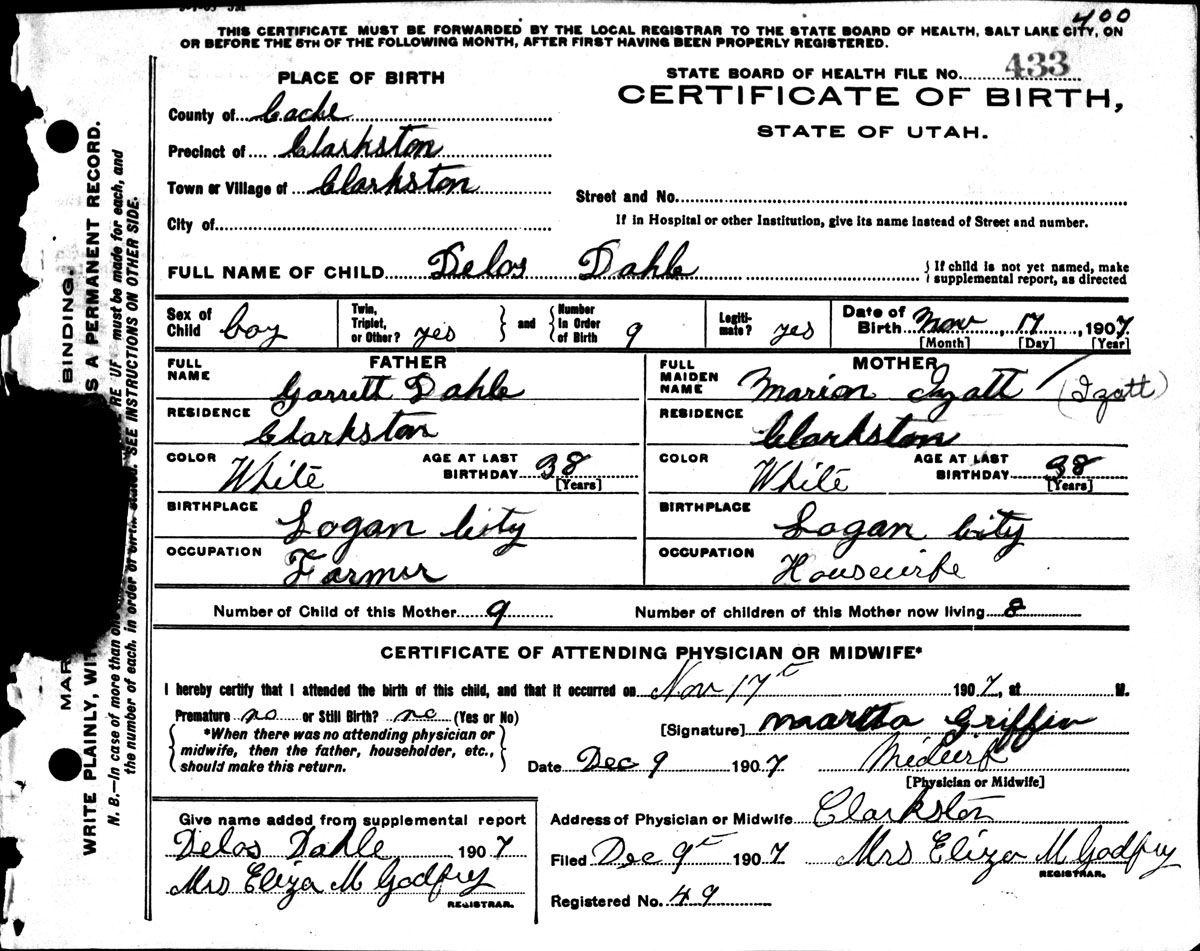 400
THIS CERTIFICATE MUST BE FORWARDED BY THE LOCAL REGISTRAR TO THE STATE BOARD OF HEALTH, SALT LAKE CITY, ON
OR BEFORE THE 5TH OF THE FOLLOWING MONTH, AFTER FIRST HAVING BEEN PROPERLY REGISTERED.
PLACE OF BIRTH
STATE BOARD OF HEALTH FILE No. 433
CERTIFICATE OF BIRTH,
STATE OF UTAH.
County of Cache
Precinct of Clarkston
Town or Village of Clarkston
Street and No.
City of
If in Hospital or other Institution, give its name instead of Street and number.
FULL NAME OF CHILD Delos Dahle
{ If child is not yet named, make
supplemental report, as directed
Sex of Child boy
Twin, Triplet, or Other? yes } and { Number In Order of Birth 9
Legitimate? yes
Date of Birth Nov, 17, 1907
[Month] [Day] [Year]
FATHER
FULL NAME Garrett Dahle
RESIDENCE Clarkston
COLOR White AGE AT LAST BIRTHDAY 38 [Years]
BIRTHPLACE Logan City
OCCUPATION Farmer
MOTHER
FULL MAIDEN NAME Marion Izatt (Izatt)
RESIDENCE Clarkston
COLOR White AGE AT LAST BIRTHDAY 38 [Years]
BIRTHPLACE Logan City
OCCUPATION Housewife
Number of Child of this Mother 9 Number of children of this Mother now living 8
CERTIFICATE OF ATTENDING PHYSICIAN OR MIDWIFE*
I hereby certify that I attended the birth of this child, and that it occurred on Nov 17t 1907, at M.
Premature no or Still Birth? no (Yes or No)
{ *When there was no attending physician or
midwife, then the father, householder, etc.,
should make this return. }
[Signature] Martha Griffin
Date Dec 9 1907 Midwife
[Physician or Midwife]
Give name added from supplemental report
Delos Dahle 1907
Mrs Eliza M Godfrey
REGISTRAR.
Address of Physician or Midwife Clarkston
Filed Dec 9t 1907 Mrs Eliza M Godfrey
REGISTRAR.
Registered No. 49
BINDING.
WRITE PLAINLY, S A PERMANENT RECORD.
N. B.—In case of more than must be made for each, and
the number of each, in order of birth stated. SEE INSTRUCTIONS ON OTHER SIDE.